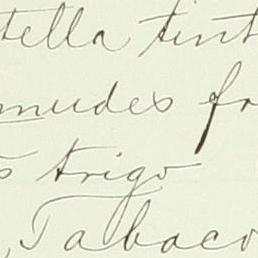 tella tint
mudes fr
s trigo
, Tabaco